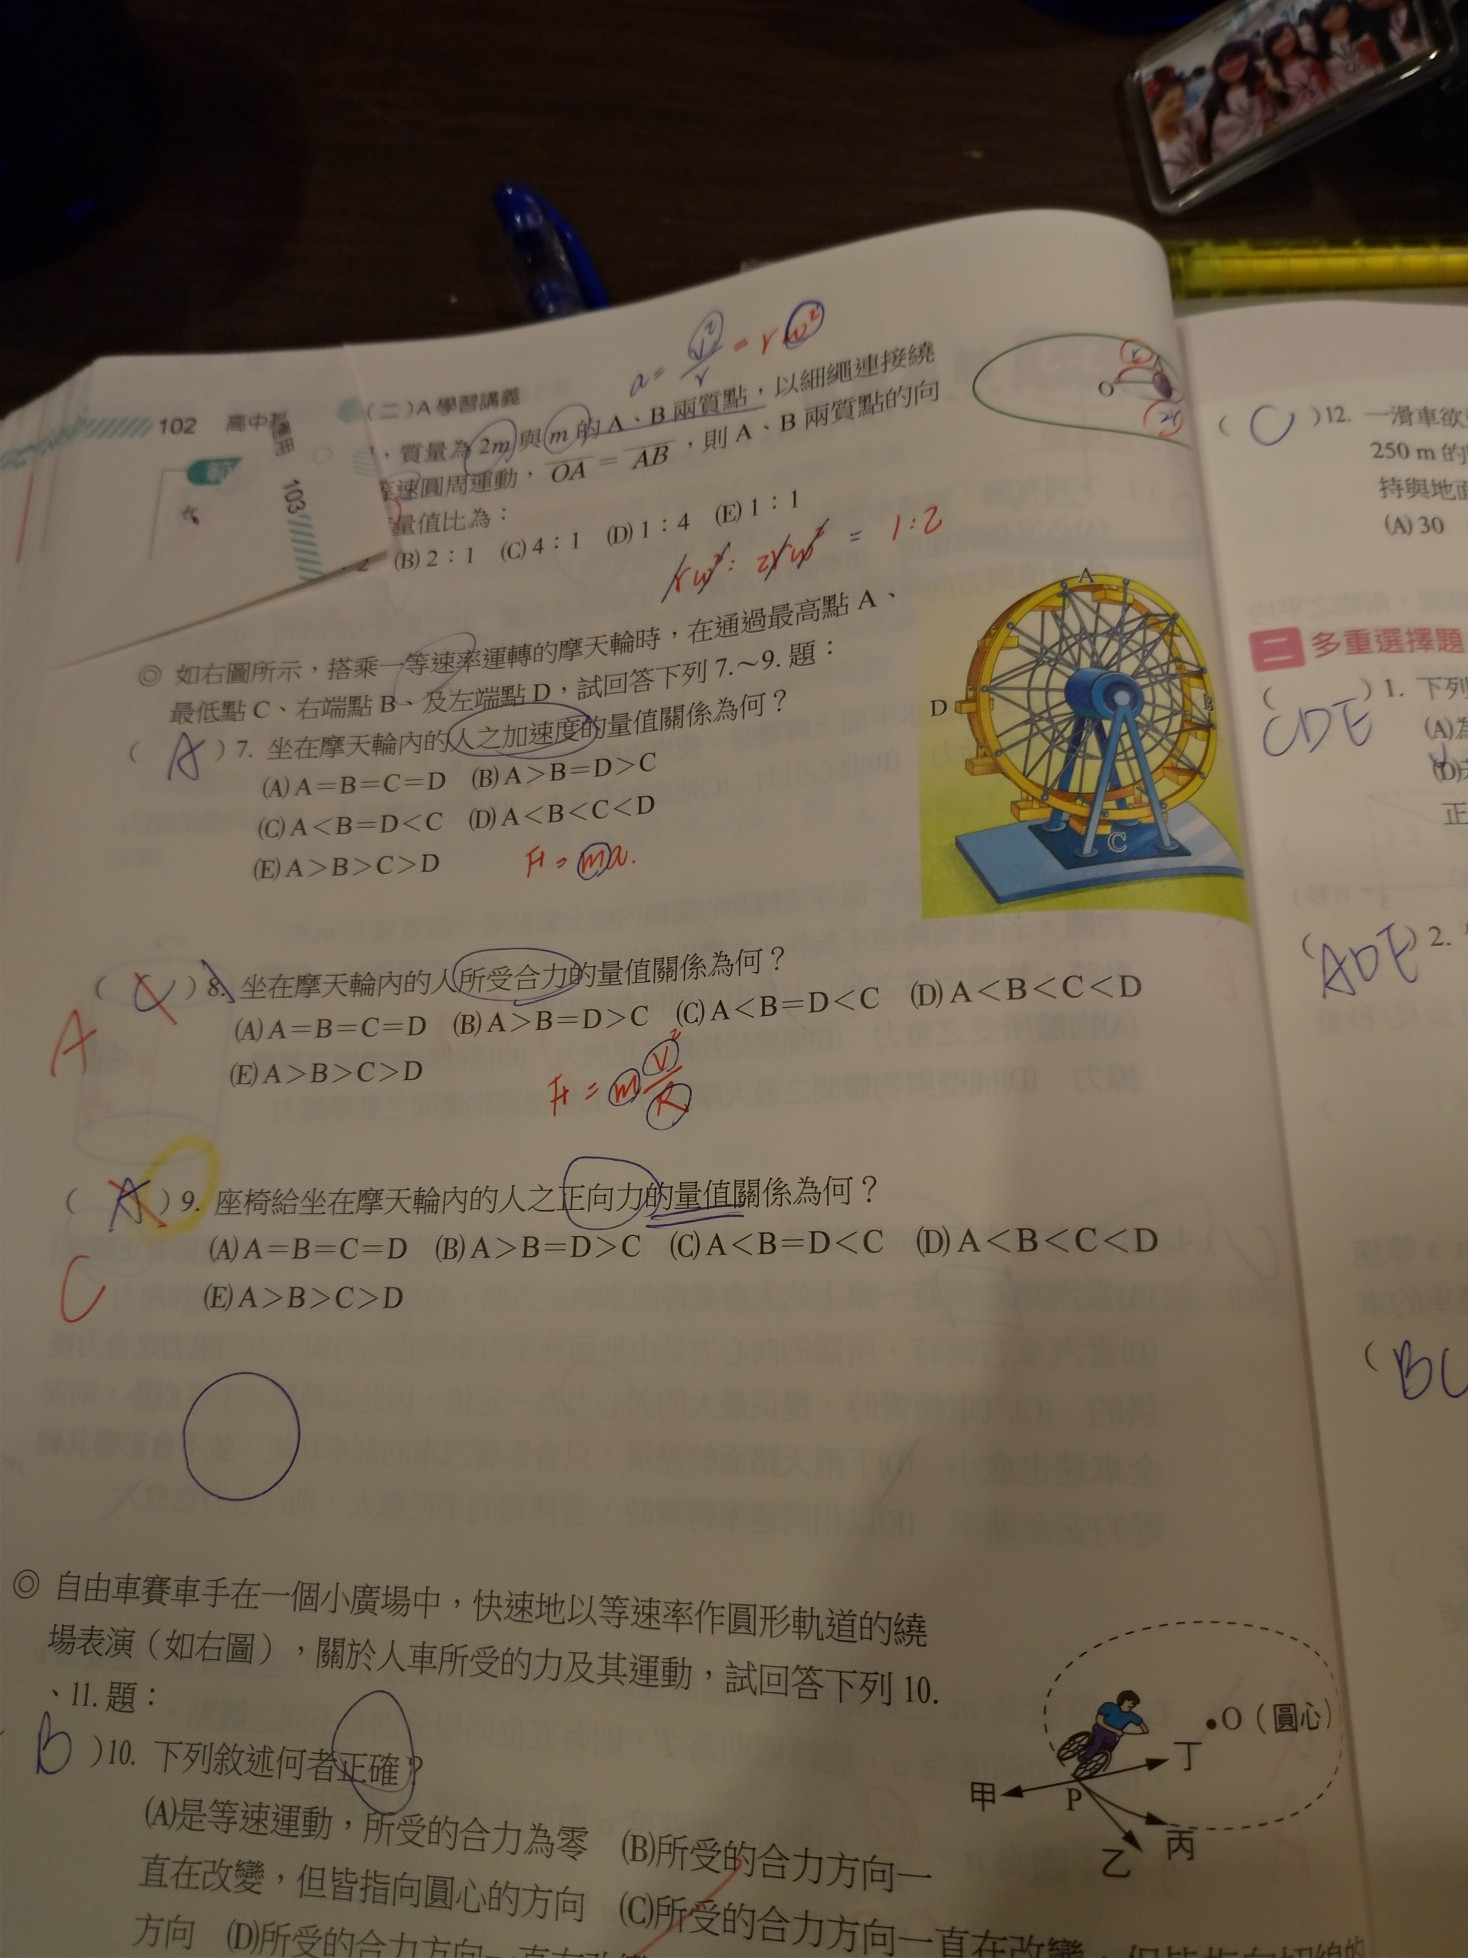 a = v²/r = rω²
102 高中基
(二)A學習講義
103
，質量為 2m 與 m 的 A、B 兩質點，以細繩連接繞
等速圓周運動，OA = AB，則 A、B 兩質點的向
量值比為：
2 (B) 2：1 (C) 4：1 (D) 1：4 (E) 1：1
rω² : 2rω² = 1:2
O
r
A
2r
◎ 如右圖所示，搭乘一等速率運轉的摩天輪時，在通過最高點 A、
最低點 C、右端點 B、及左端點 D，試回答下列 7.～9. 題：
( A ) 7. 坐在摩天輪內的人之加速度的量值關係為何？
(A) A＝B＝C＝D (B) A＞B＝D＞C
(C) A＜B＝D＜C (D) A＜B＜C＜D
(E) A＞B＞C＞D
F = ma.
A
B
C
D
( C ) 8. 坐在摩天輪內的人所受合力的量值關係為何？
A
(A) A＝B＝C＝D (B) A＞B＝D＞C (C) A＜B＝D＜C (D) A＜B＜C＜D
(E) A＞B＞C＞D
F = m v²/R
( A ) 9. 座椅給坐在摩天輪內的人之正向力的量值關係為何？
C
(A) A＝B＝C＝D (B) A＞B＝D＞C (C) A＜B＝D＜C (D) A＜B＜C＜D
(E) A＞B＞C＞D
◎ 自由車賽車手在一個小廣場中，快速地以等速率作圓形軌道的繞
場表演（如右圖），關於人車所受的力及其運動，試回答下列 10.
、11. 題：
( B ) 10. 下列敘述何者正確？
(A)是等速運動，所受的合力為零 (B)所受的合力方向一
直在改變，但皆指向圓心的方向 (C)所受的合力方向一直在改變，但皆指向切線的
方向 (D)所受的合力方向一直在改變
O（圓心）
甲
P
丁
乙
丙
( C ) 12. 一滑車欲
250 m 的
持與地面
(A) 30
二 多重選擇題
( CDE ) 1. 下列
(A)為
(D)
正
( ADE ) 2.
( BC